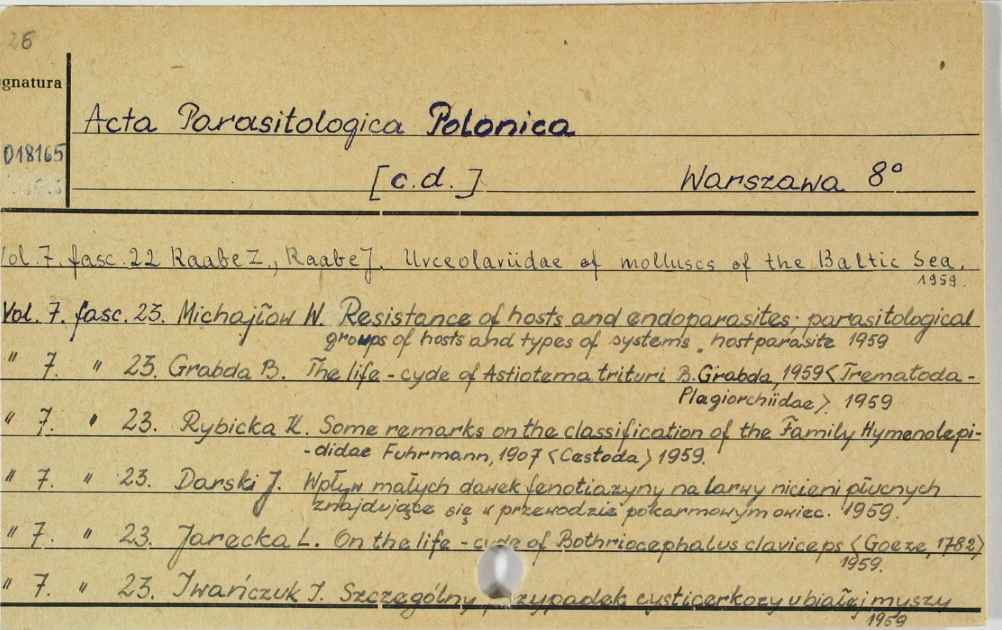 26
gnatura
Acta Parasitologica Polonica
018165
[c.d.] Warszawa 8°
Vol. 7. fasc. 22 Raabe Z., Raabe J. Urceolariidae of molluscs of the Baltic Sea.
1959.
Vol. 7. fasc. 23. Michajłow W. Resistance of hosts and endoparasites; parasitological
groups of hosts and types of systems. hostparasite 1959
" 7. " 23. Grabda B. The life-cycle of Astiotema trituri B. Grabda, 1959 <Trematoda-
Plagiorchiidae>. 1959
" 7. " 23. Rybicka K. Some remarks on the classification of the Family Hymenolepi-
-didae Fuhrmann, 1907 <Cestoda> 1959.
" 7. " 23. Darski J. Wpływ małych dawek fenotiazyny na larwy nicieni płucnych
znajdujące się w przewodzie pokarmowym owiec. 1959.
" 7. " 23. Jarecka L. On the life-cycle of Bothriocephalus claviceps <Goeze, 1782>
1959.
" 7. " 23. Iwańczuk I. Szczególny przypadek cysticerkozy u białej myszy
1959